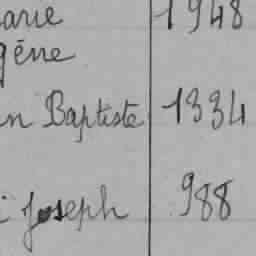 arie 1948
gène
n Baptiste 1334
i Joseph 988